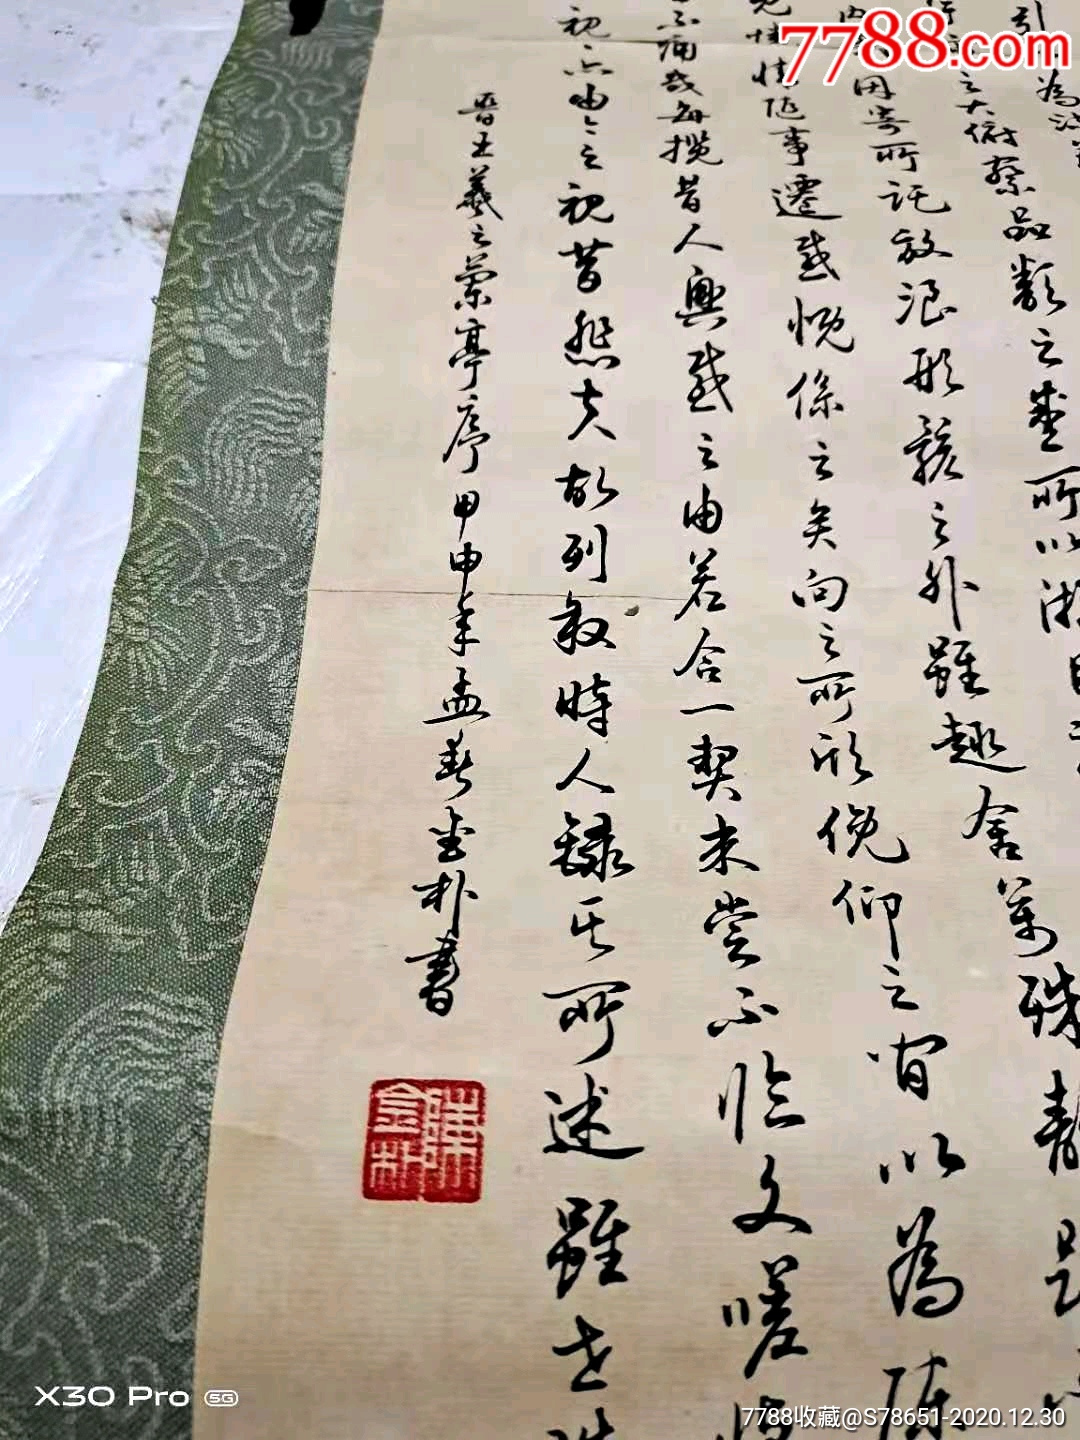 7788.com
引 為流
之大俯察品類之盛所以游目
因寄所託放浪形骸之外雖趣舍萬殊靜躁
情隨事遷感慨係之矣向之所欣俛仰之間以為陳
不痛哉每攬昔人興感之由若合一契未嘗不臨文嗟悼
視亦由今之視昔悲夫故列敘時人錄其所述雖世殊
晋王羲之蘭亭序甲申年孟春金朴書
陳金朴
X30 Pro 5G
7788收藏@S78651-2020.12.30